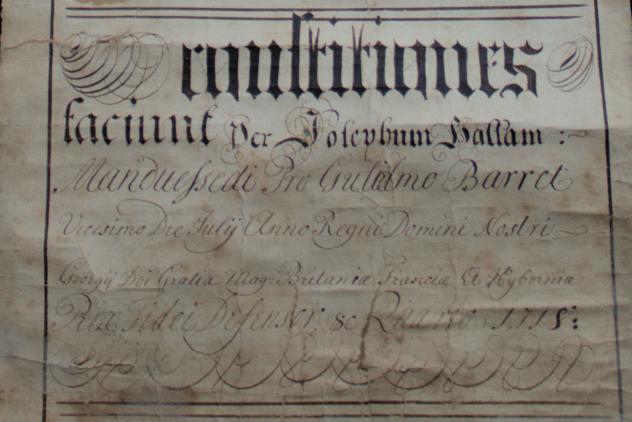 constitiones
faciunt Per Josephum Hallam :~
Manduessedi Pro Gulielmo Barret
Vicesimo Die Julij Anno Regni Domini Nostri
Georgij Dei Gratia Mag: Britaniæ Franciæ Et Hyberniæ
Rex Fidei Defensor &c Quarto 1718: